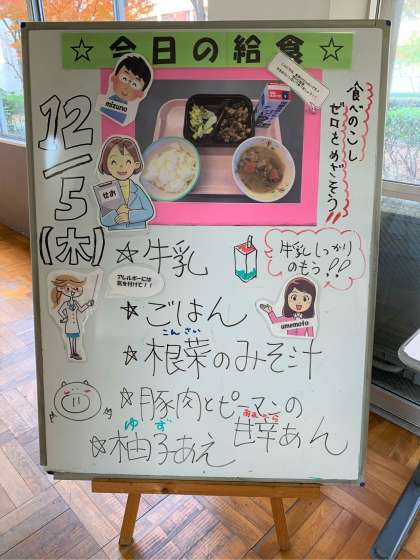 ☆今日の給食☆
食べのこし
ゼロをめざそう!!
mizuno
せお
12/5(木)
☆牛乳
牛乳しっかり
のもう??
アレルギーには
気を付けて!!
☆ごはん
umemoto
こんさい
☆根菜のみそ汁
☆豚肉とピーマンの
あまから
甘辛あん
ゆず
☆柚子あえ